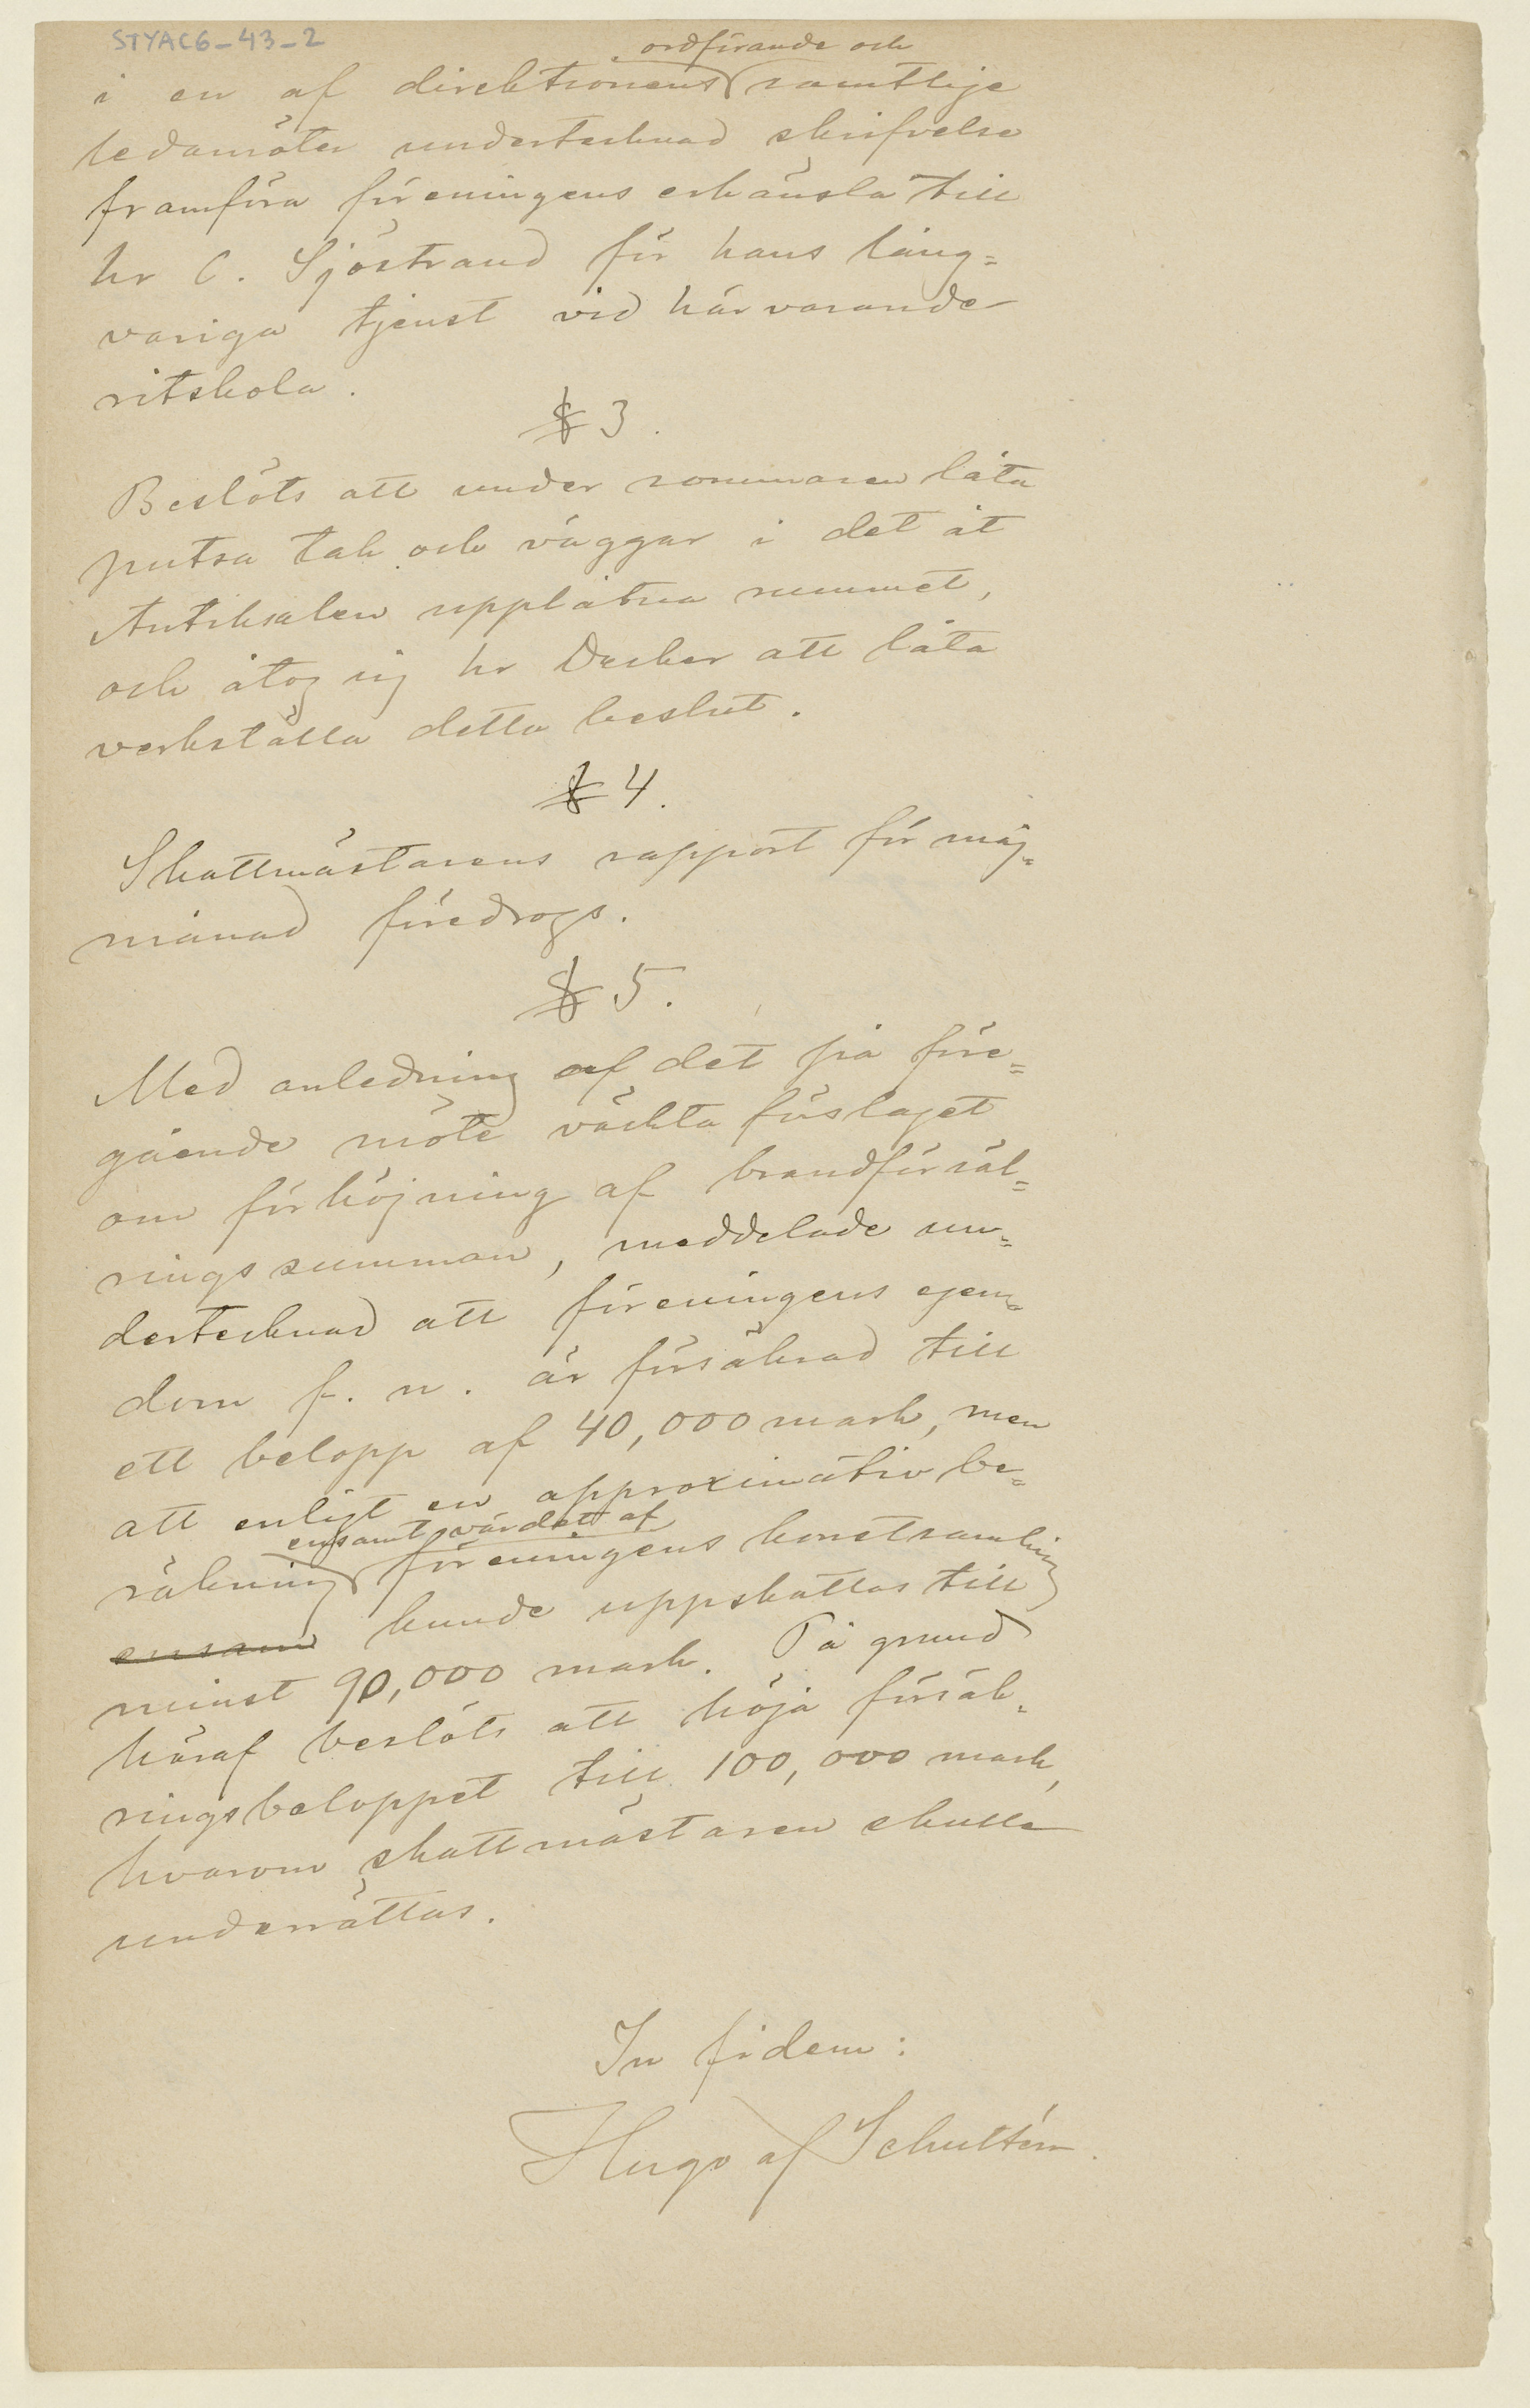 STYAC6-43-2
ordförande och
i en af direktionens samtlige
ledamöter undertecknad skrifvelse
framföra föreningens erkänsla till
hr C. Sjöstrand för hans lång=
variga tjenst vid härvarande
ritskola.
§ 3.
Beslöts att under sommaren låta
putsa tak och väggar i det åt
Antiksalen upplåtna rummet,
och åtog sig hr Decker att låta
verkställa detta beslut.
§ 4.
Skattmästarens rapport för maj=
månad föredrogs.
§ 5.
Med anledning af det på före=
gående möte väckta förslaget
om förhöjning af brandförsäk=
ringssumman, meddelade un=
dertecknad att föreningens egen=
dom f. n. är försäkrad till
ett belopp af 40,000 mark, men
att enligt en approximativ be=
ensamt värdet af
räkning föreningens konstsamling
ensam kunde uppskattas till
minst 90,000 mark. På grund
häraf beslöts att höja försäk=
ringsbeloppet till 100,000 mark,
hvarom skattmästaren skulle
underrättas.
In fidem:
Hugo af Schultén.